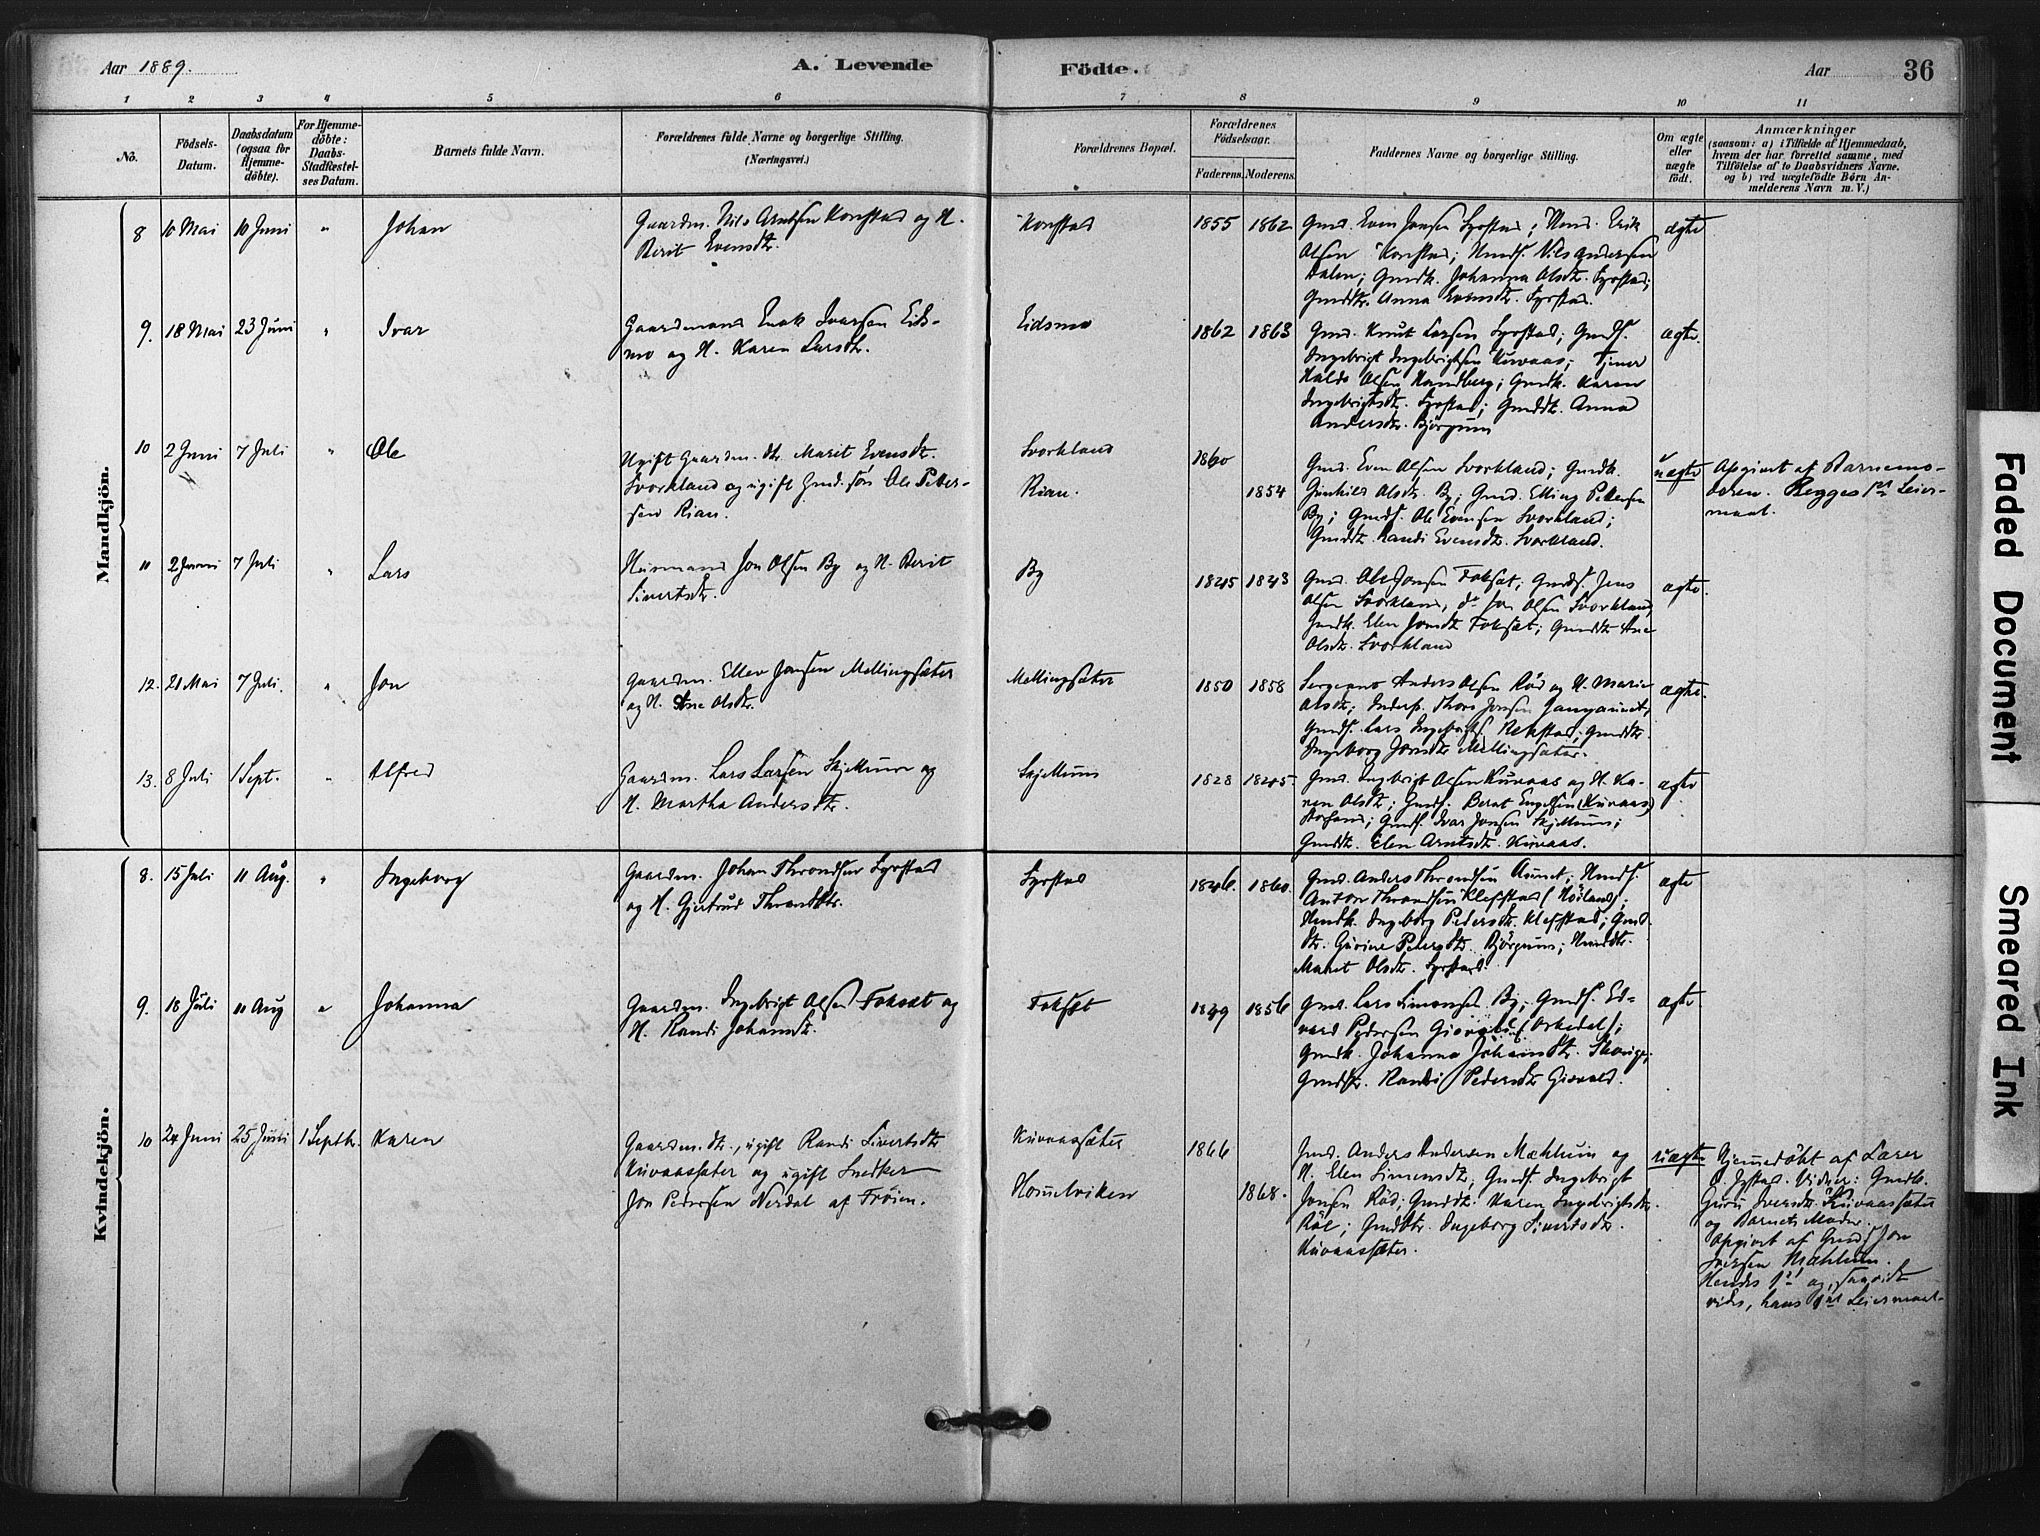 Aar 1889.
A. Levende
Födte.
Aar
36
1 2 3 4 5 6 7 8 9 10 11
No.
Födsels-
Datum.
Daabsdatum
(ogsaa for
Hjemme-
döbte).
For Hjemme-
döbte:
Daabs-
Stadfæstel-
ses Datum.
Barnets fulde Navn.
Forældrenes fulde Navne og borgerlige Stilling.
(Næringsvei.)
Forældrenes Bopæl.
Forældrenes
Födselsaar.
Faderens. Moderens.
Faddernes Navne og borgerlige Stilling.
Om ægte
eller
uægte
födt.
Anmærkninger
(saasom: a) i Tilfælde af Hjemmedaab,
hvem der har forrettet samme, med
Tilföielse af to Daabsvidners Navne.
og b) ved uægtefödte Börn An-
melderens Navn m. V.)
Mandkjön.
8 10 Mai 10 Juni " Johan
Gaardm. Nils Arntsen Konstad og H.
Berit Evensdtr.
Konstad
1855 1862
Gmd. Even Jonsen Syrstad; Hmd. Erik
Olsen Konstad; Nils Andersen
Dalen; Gmdk. Johanna Olsdtr. Syrstad;
Gmddtr. Anna Evensdtr. Syrstad.
ægte
9. 18 Mai 23 Juni " Ivar
Gaardmand Enok Ivarsen Eids-
mo og H. Karen Larsdtr.
Eidsmo
1862 1863
Gmd. Knut Larsen Syrstad; Gmds.
Ingebrigt Ingebrigtsen Kuvaas; Tjener
Halds Olsen Sandberg; Gmdk. Karen
Ingebrigtsdtr. Syrstad; Gmddtr. Anna
Andersdtr. Bjørgum
ægte.
10 2 Juni 7 Juli " Ole
Ugift Gaardm. dtr. Marit Evensdtr.
Svorkland og ugift Gmd. søn Ole Peter-
sen Rian.
Svorkland
Rian.
1860
1854
Gmd. Even Olsen Svorkland; Gmdk.
Gunhild Olsdtr. By; Gmd. Elling Pettersen
By; Gmds. Ole Evensen Svorkland;
Gmddtr. Randi Evensdtr. Svorkland.
uægte
Opgivet af Barnemo-
deren. Begges 1ste Leier-
maal.
11 2 Juni 7 Juli " Lars
Husmand Jon Olsen By og H. Berit
Sivertsdtr.
By
1845 1843
Gmd. Ole Jonsen Foksæt; Gmds. Jens
Olsen Svorkland, do Jon Olsen Svorkland
Gmdk. Elen Jonsdtr Foksæt; Gmddtr Ane
Olsdtr. Svorkland
ægte.
12. 21 Mai 7 Juli. " Jon
Gaardm. Ellev Jonsen Mellingsæter
og H. Ane Olsdtr.
Mellingsæter
1850 1858
Sergeant Anders Olsen Rød og H. Marie
Olsdtr; Inders. Thore Jonsen
Gmds. Lars Ingebrigts. Rekstad; Gmddtr.
Ingeborg Jonsdtr Mellingsæter.
ægte.
13. 8 Juli 1 Sept. " Alfred
Gaardm. Lars Larsen Skjellum og
H. Martha Andersdtr.
Skjellum
1828 1845.
Gmd. Ingebrigt Olsen Kuvaas og H. Ka-
ren Olsdtr; Gmds. Berat Engelsen (Kuvaas)
Gmds. Ivar Jonsen Skjellum;
Gmddtr. Elen Arntsdtr. Kuvaas.
ægte
Kvindekjön.
8. 15 Juli 11 Aug. " Ingeborg
Gaardm. Johan Throndsen Syrstad
og H. Gjertrud Throndsdtr.
Syrstad
1846. 1860.
Gmd. Anders Throndsen Aunet; Hmds.
Anton Throndsen Klefstad (Høiland);
Hmdk. Ingeborg Pedersdtr. Klefstad; Gmd.
dtr. Gurine Petersdtr. Bjørgum; Hmddtr.
Marit Olsdtr. Syrstad.
ægte
9. 18 Juli 11 Aug " Johanna
Gaardm. Ingebrigt Olsen Foksæt og
H. Randi Johansdtr.
Foksæt
1849 1856
Gmd. Lars Simonsen By; Gmds. Ed-
vard Pedersen Gisvold (Orkedal);
Gmdk. Johanna Johansdtr.
Gmddtr. Randi Pedersdtr Gisvold.
ægte
10 24 Juni 25 Juni 1 Septbr. Karen
Gaardm. dtr., ugift Randi Sivertsdtr
Kuvaassæter og ugift Snedker
Jon Pedersen Nerdal af Frøien.
Kuvaassæter
Hommelviken
1866
1868.
Gmd. Anders Andersen Mæhlum og
H. Elen Simensdtr; Gmds. Ingebrigt
Jonsen Rød; Gmddtr. Karen Ingebrigtsdtr.
Gmddtr. Ingeborg Sivertsdtr.
Kuvaassæter.
uægte
Hjemmedøbt af Lærer
O. Systad. Vidner: Gmdk.
Guru Iversdtr. Kuvaassæter
og Barnets Moder.
Opgivet af Gmds. Jon
Iversen Mæhlum.
Hendes 1ste og, saavidt
vides, hans 1ste Leiermaal.
Faded Document
Smeared Ink